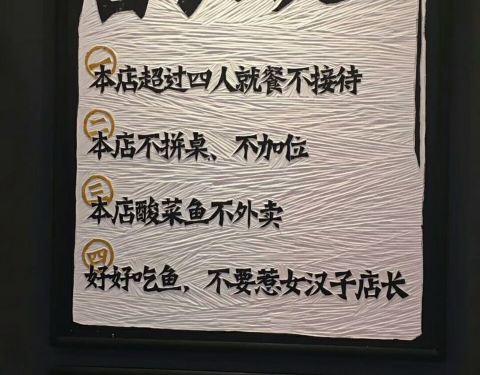 一
本店超过四人就餐不接待
二
本店不拼桌、不加位
三
本店酸菜鱼不外卖
四
好好吃鱼，不要惹女汉子店长